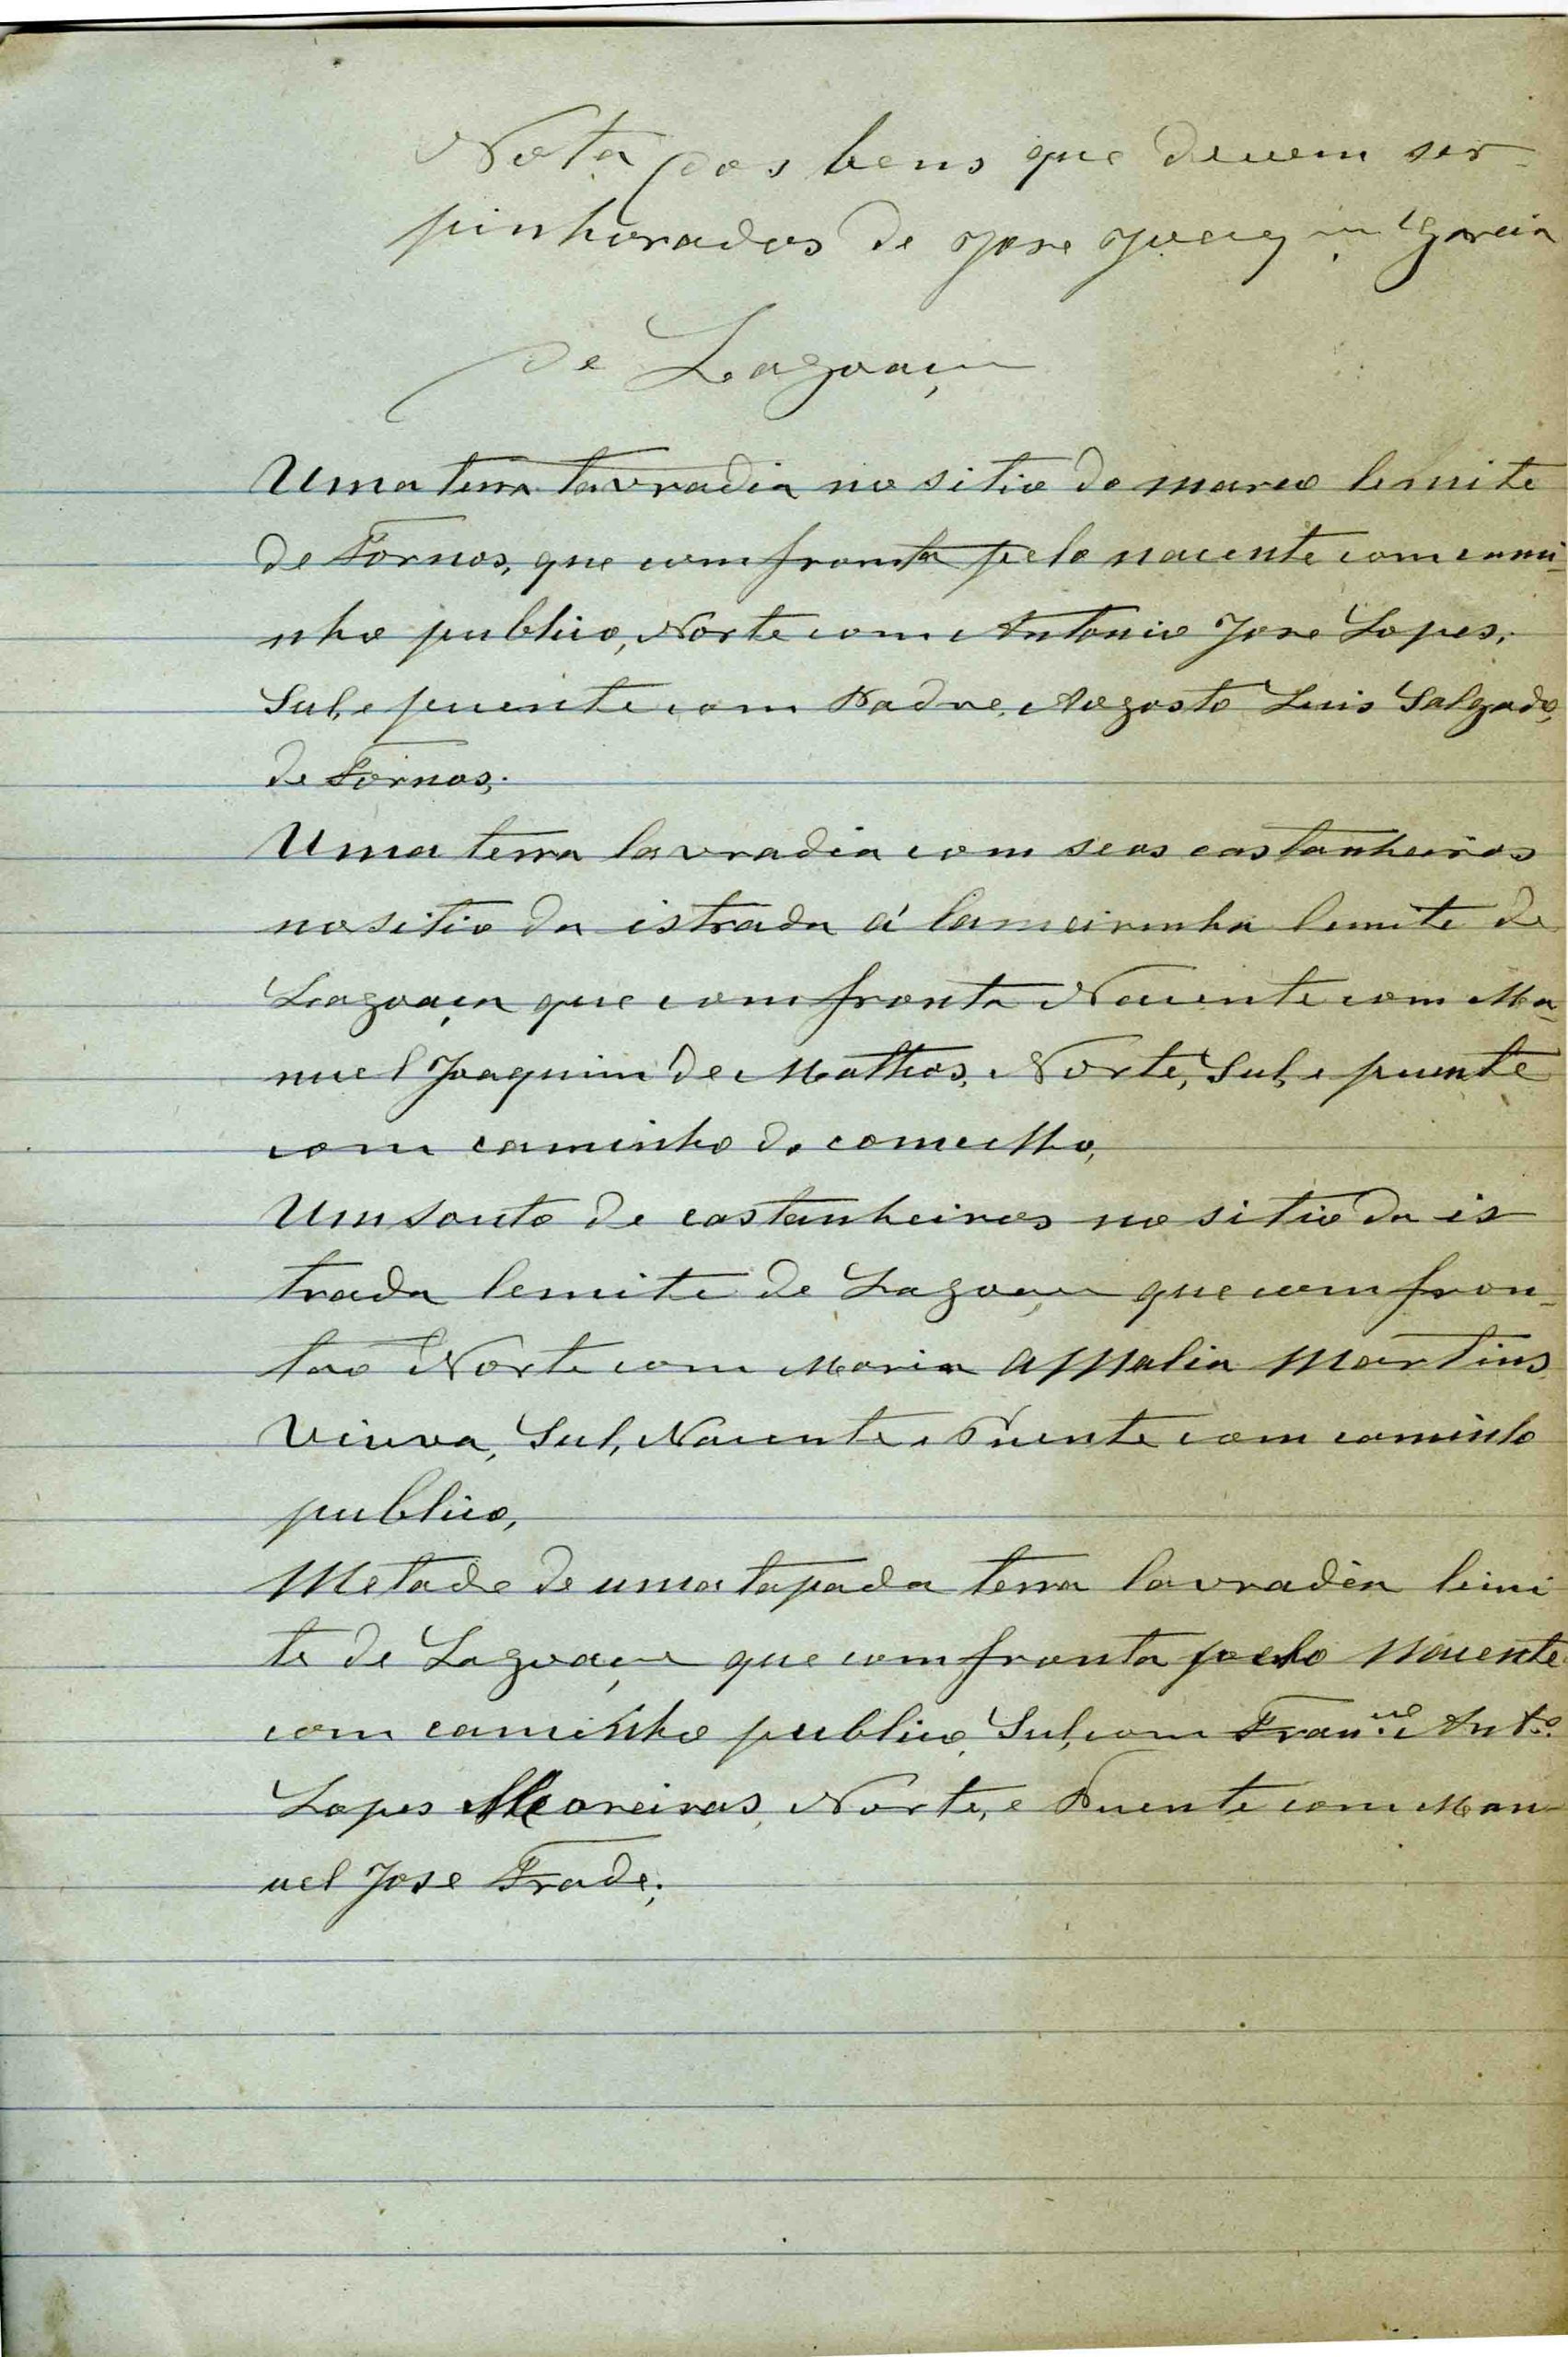 Nota dos bens que devem ser
pinhorados de Jose Joaqim Garcia
de Lagoaça
Uma terra lavradia no sitio do marco lemite
de Fornos, que comfronta pelo nacente com cami-
nho publico, Norte com Antonio Jose Lopes,
Sul, e puente com Padre, Aogosto Luis Salgado,
de Fornos;
Uma terra lavradia com seos castanheiros
no sitio da istrada á lameirinha lemite de
Lagoaça que comfronta Nacente com Ma-
nuel Joaquim de Mathos, Norte, Sul, e puente
com caminho do comcelho,
Um souto de castanheiros no sitio da is
trada lemite de Lagoaça que comfron-
tao Norte com Maria Amalia Martins
Viuva, Sul, Nacente e Puente com caminho
publico,
Metade de uma tapada terra lavradia limi
te de Lagoaça que comfronta pelo Nacente
com caminho publico, Sul, com Anto
Lopes Moreiras, Norte, e Puente com Man-
uel Jose Frade;